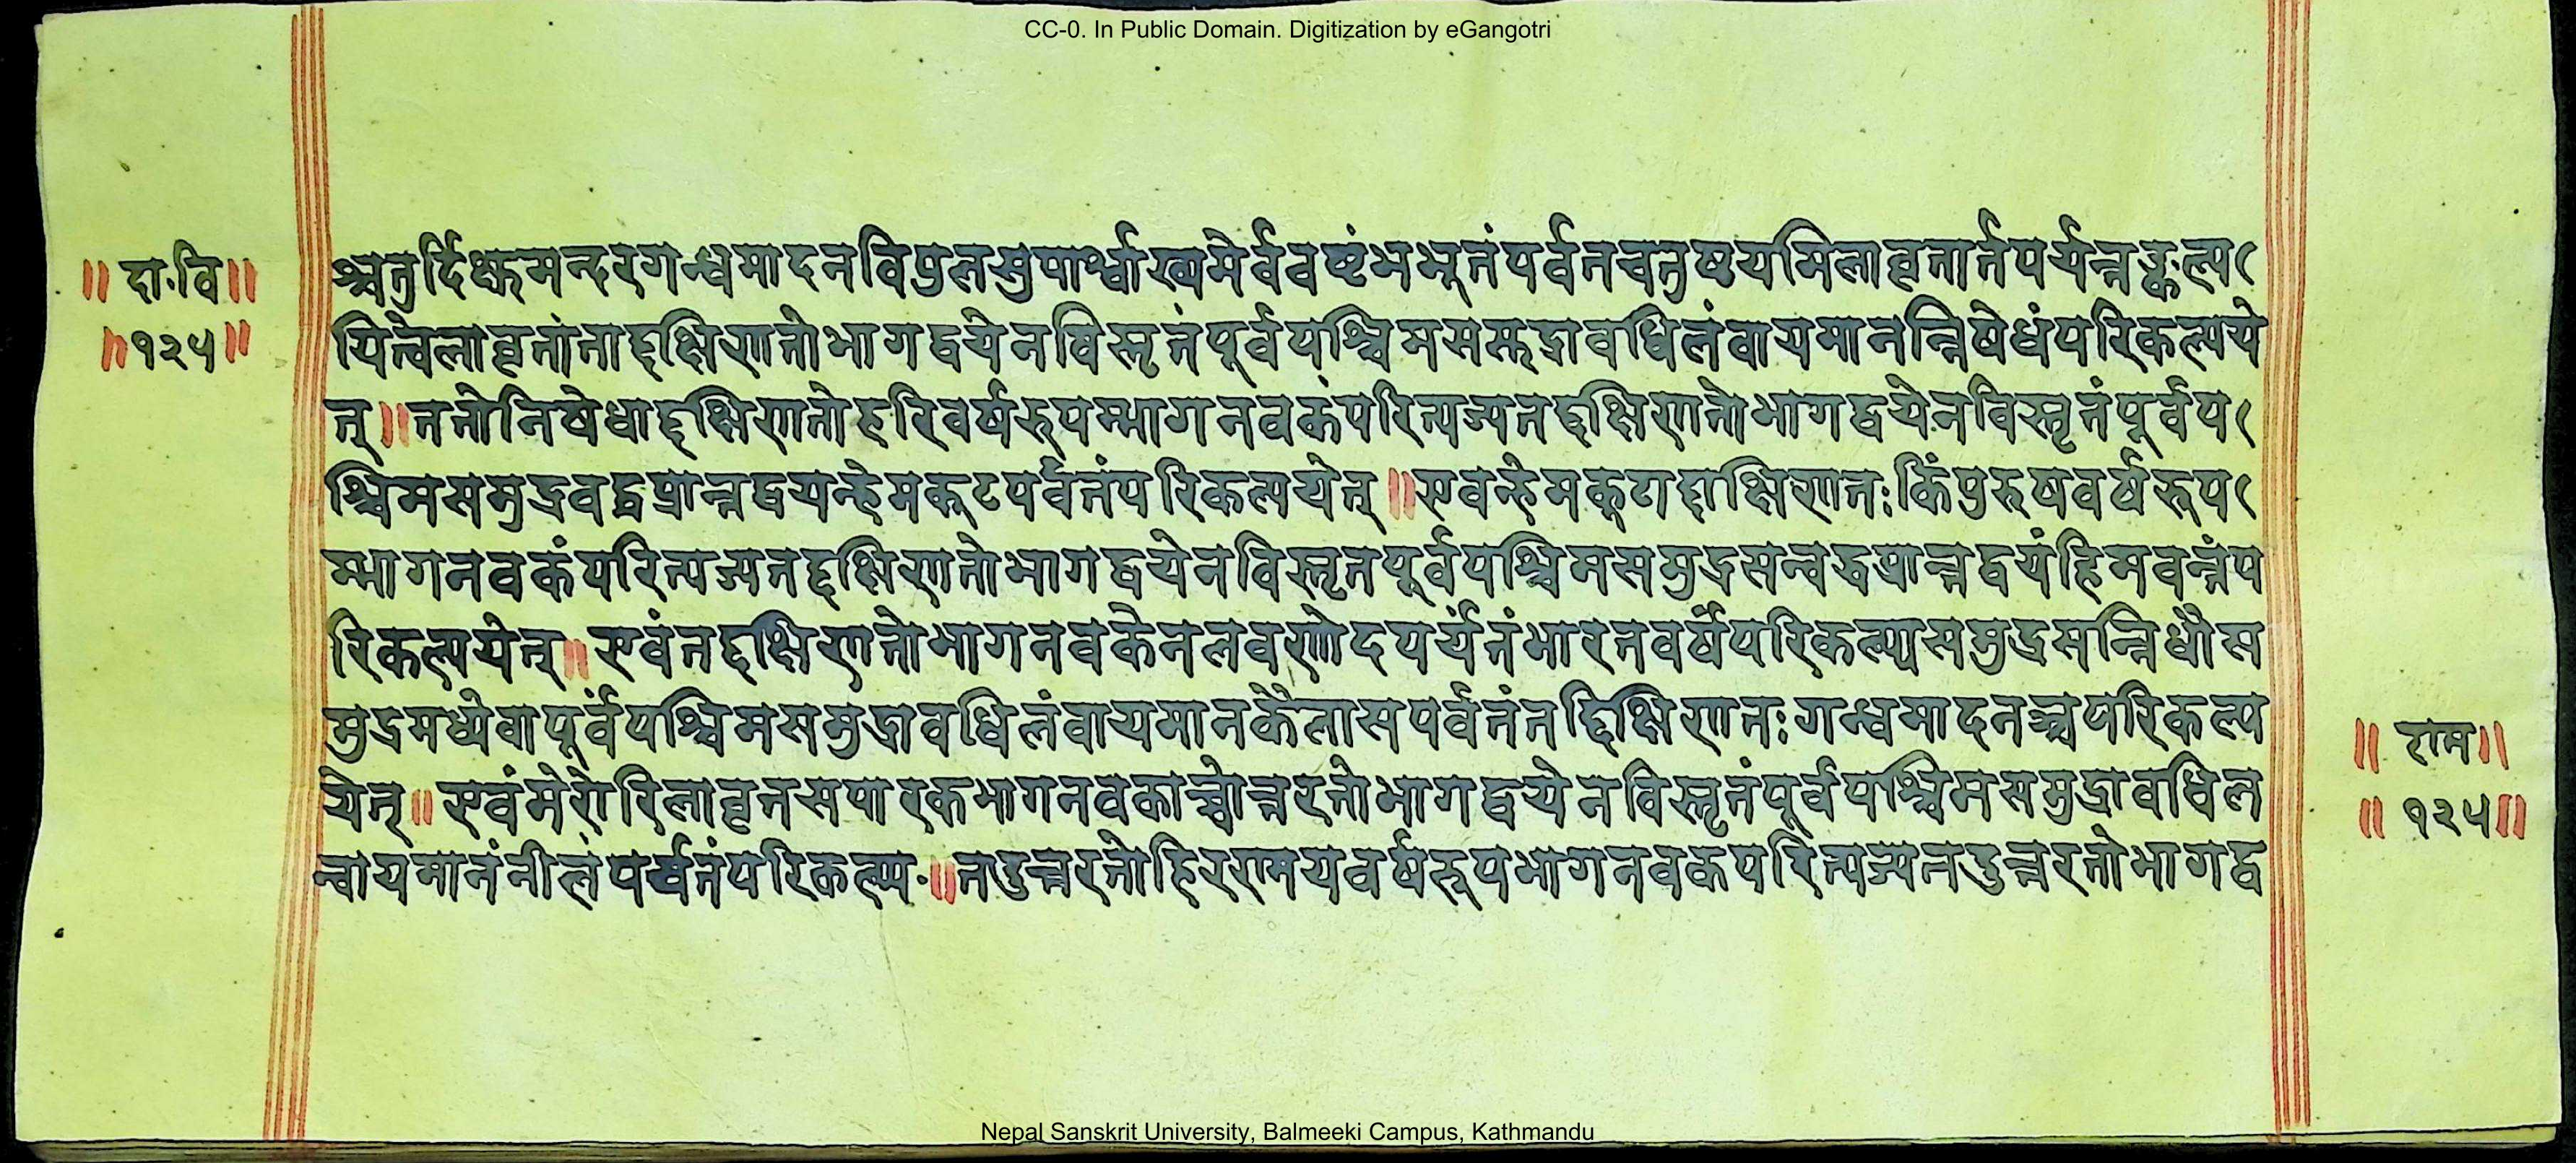 CC-0. In Public Domain. Digitization by eGangotri
॥ दा.वि॥
॥१२५॥
श्चतुर्दिक्षमन्दरगन्धमादनविपुलसुपार्श्वाख्यमेर्ववष्टंभभूतंपर्वतचतुष्टयमिलावृतार्तपर्यन्तङ्कल्प
यित्वेलावृतांताद्दक्षिणतोभागद्वयेनविस्तृतंपूर्वपश्चिमसमुद्रावधिलंवायमानन्निषेधंपरिकल्पये
त्॥ततोनिषेधाद्दक्षिणतोहरिवर्षरुपम्भागनवकंपरित्यज्यतद्दक्षिणतोभागद्वयेनविस्तृतंपूर्वप
श्चिमसमुद्रवद्वप्रान्तद्वयन्हेमकूटपर्वतंपरिकल्पयेत्॥एवन्हेमकूटाद्दाक्षिणतःकिंपुरुषवर्षरूप
म्भागनवकंपरित्यज्यतद्दक्षिणतोभागद्वयेनविस्तृतपूर्वपश्चिमसमुद्रसन्वद्धप्रान्तद्वयंहिमवन्तंप
रिकल्पयेत्॥एवंतद्दक्षिणतोभागनवकेनलवणोदपर्यंतंभारतवर्षंपरिकल्प्यसमुद्रसन्निधौस
मुद्रमध्येवापूर्वंपश्चिमसमुद्रावधिलंवायमानकैलासपर्वतंतद्दिक्षिणतःगन्धमादनञ्चपरिकल्प
येत्॥एवंमेरोरिलावृतसपारकभागनवकाच्चोत्तरतोभागद्वयेनविस्तृतंपूर्वपश्चिमसमुद्रावधिल
न्वायमानंनीलंपर्व्वतंपरिकल्प्य॥तदुत्तरतोहिरणमयवर्षरूपभागनवकपरित्यज्यतदुत्तरतोभागद्व
॥ राम॥
॥ १२५॥
Nepal Sanskrit University, Balmeeki Campus, Kathmandu